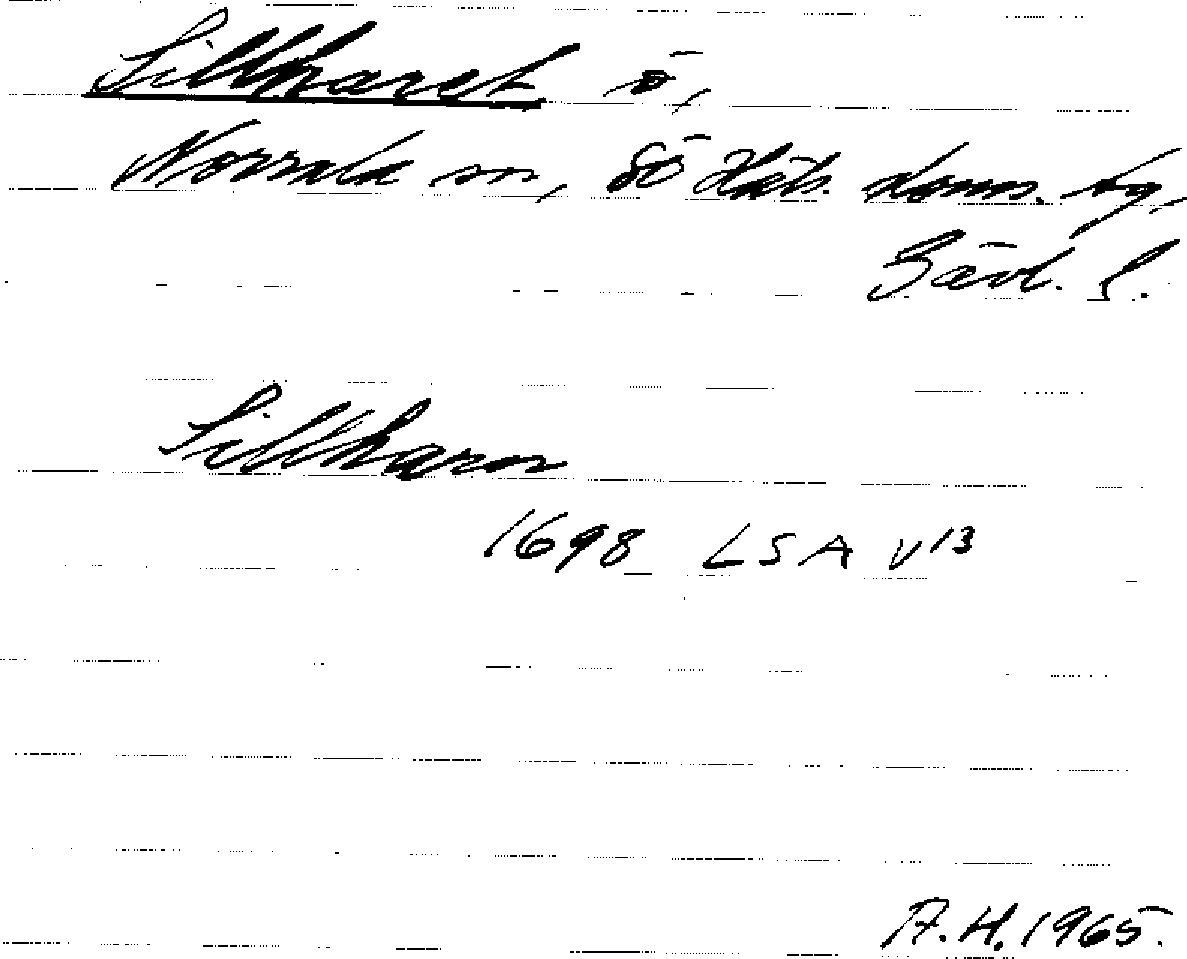 Sillharet ö,
Norrala sn, SÖ Häls. doms. tg,
Gävl. l.
Sillharn
1698 LSA V13
A.H. 1965.